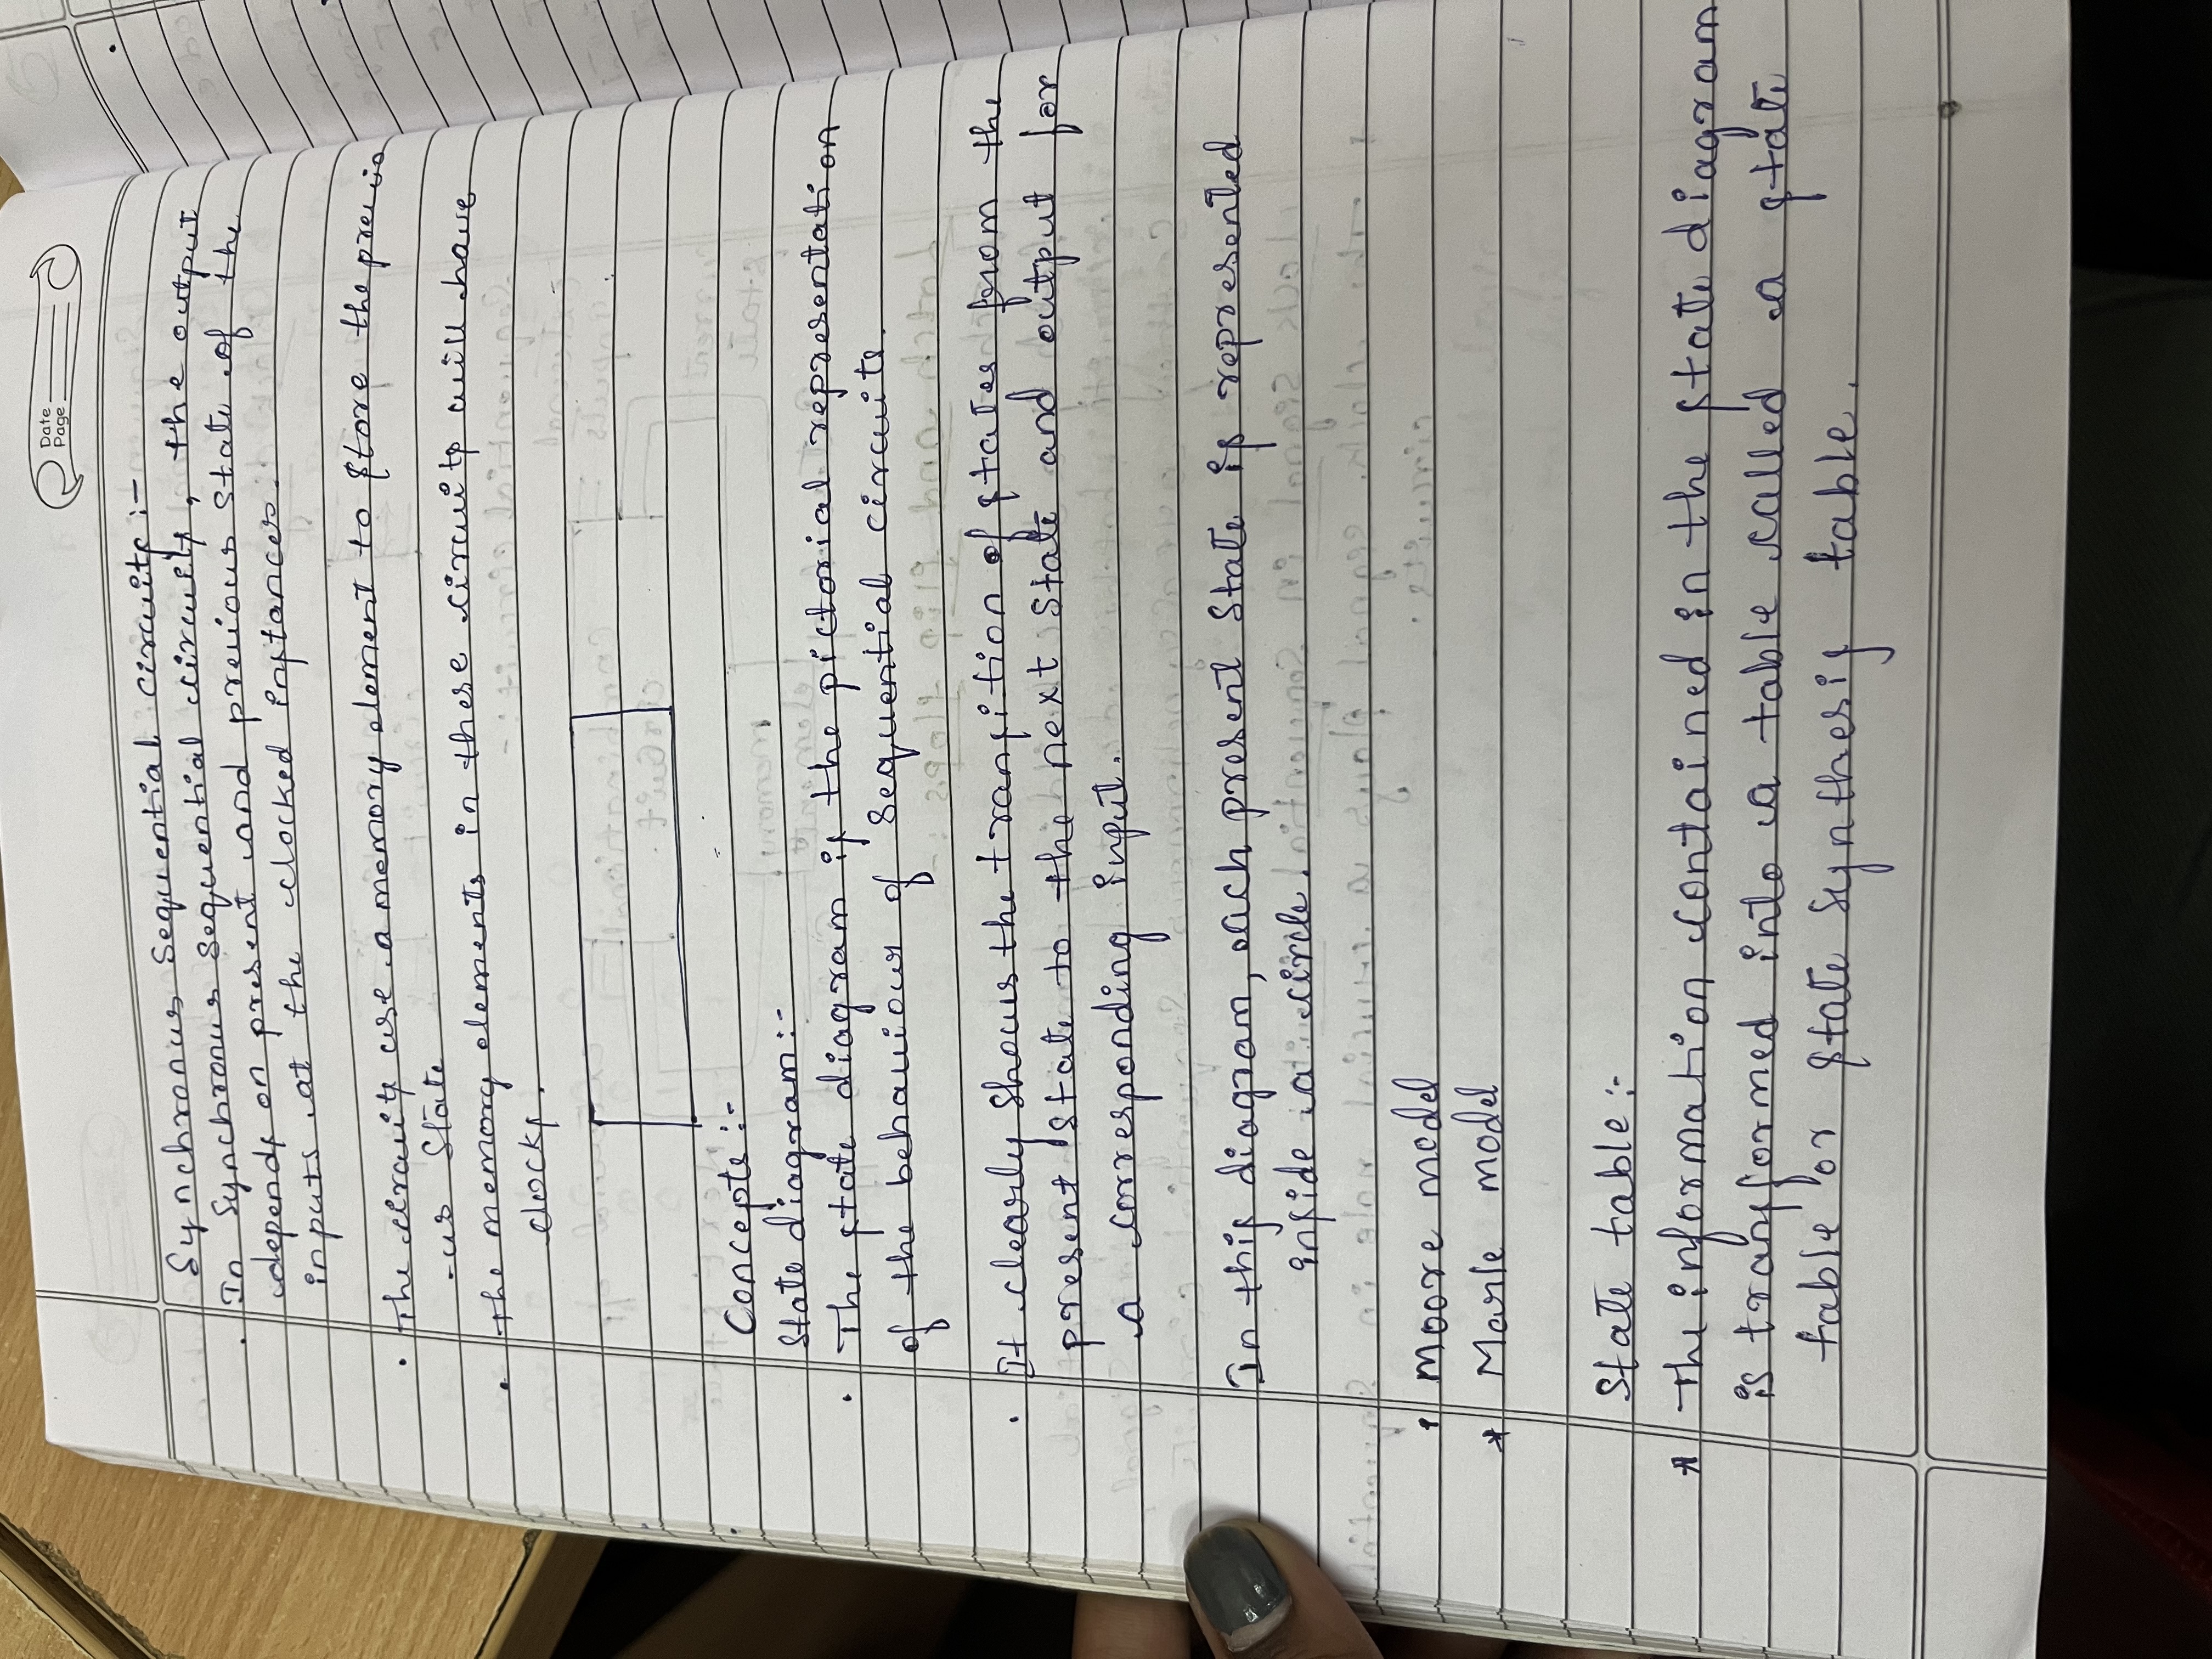 Date
Page
Synchronus Sequential circuits :-
. In Synchronus Sequential circuits, the output
depends on present and previous state of the
inputs at the clocked instances.
. The circuits use a memory element to store the previo
-us State
. The memory elements in these circuits will have
clocks.
Concepts :-
State diagram :-
. The state diagram is the pictorial representation
of the behaviour of Sequential circuits.
. It clearly shows the transition of states from the
present state to the next state and output for
a corresponding input.
In this diagram, each present state is represented
inside a circle.
. Moore model
* Marle model
State table :-
* The information contained in the state diagram
is transformed into a table called a state
table or state synthesis table.